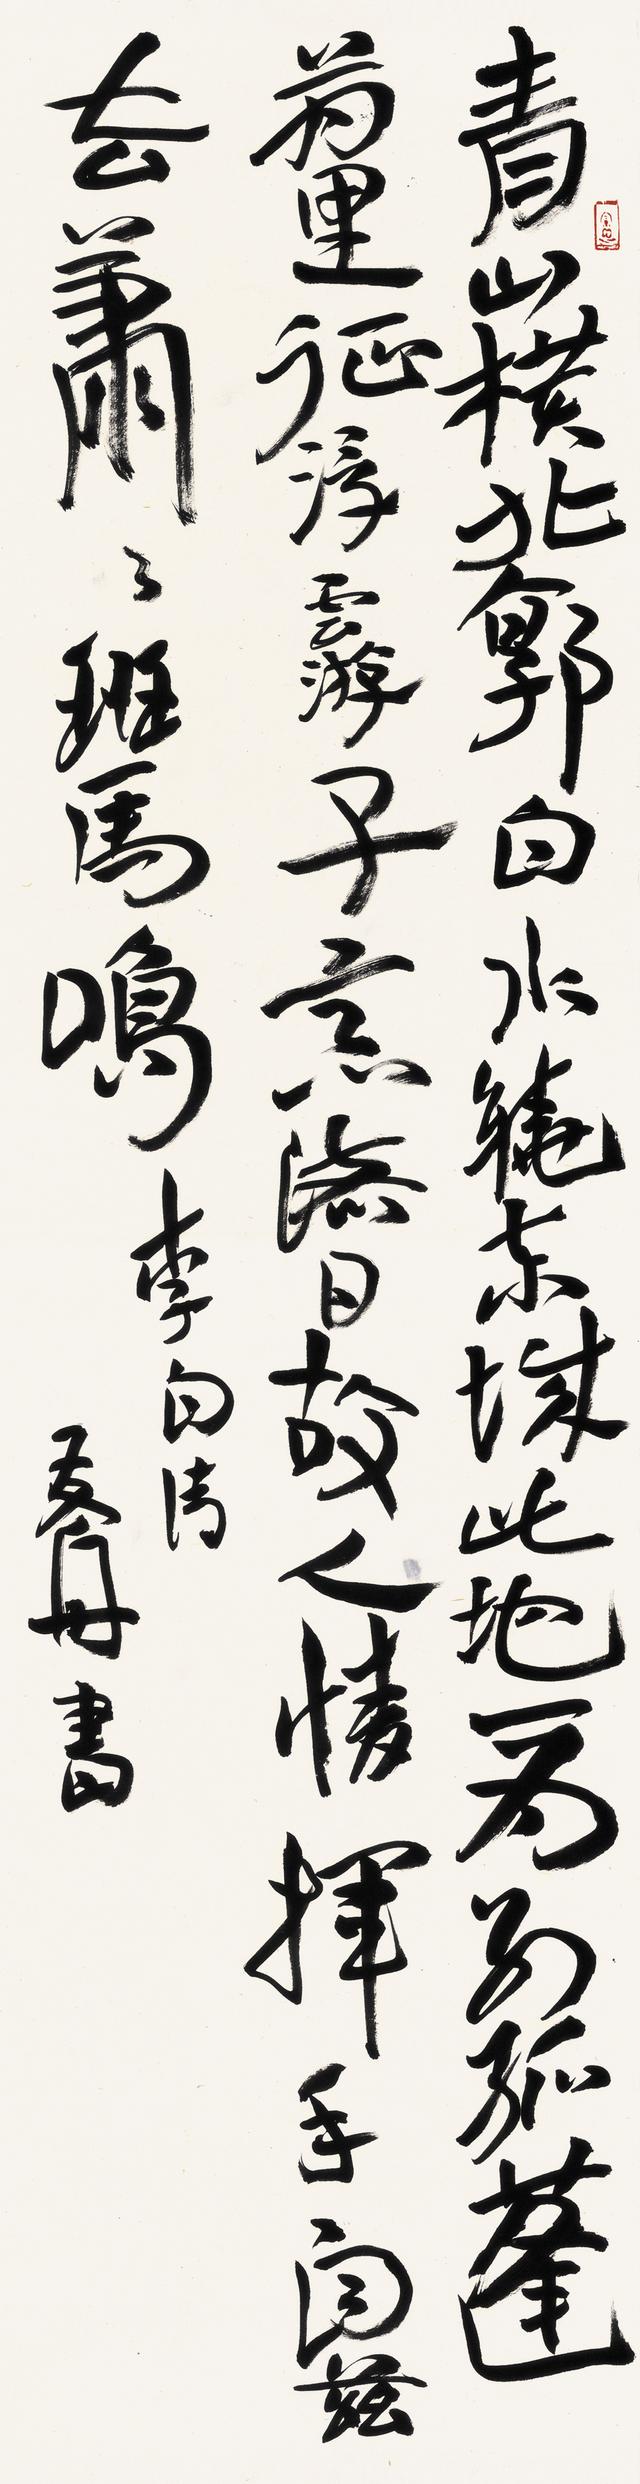 青山橫北郭白水繞東城此地一為別孤蓬
萬里征浮雲游子意落日故人情揮手自茲
去蕭々班馬鳴 李白詩
書